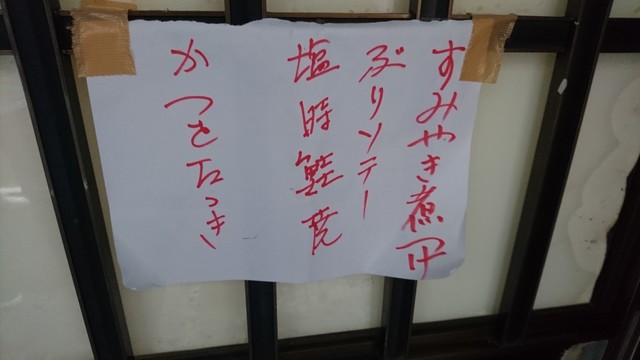 すみやき煮付
ぶりソテー
塩時鮭焼
かつをたゝき